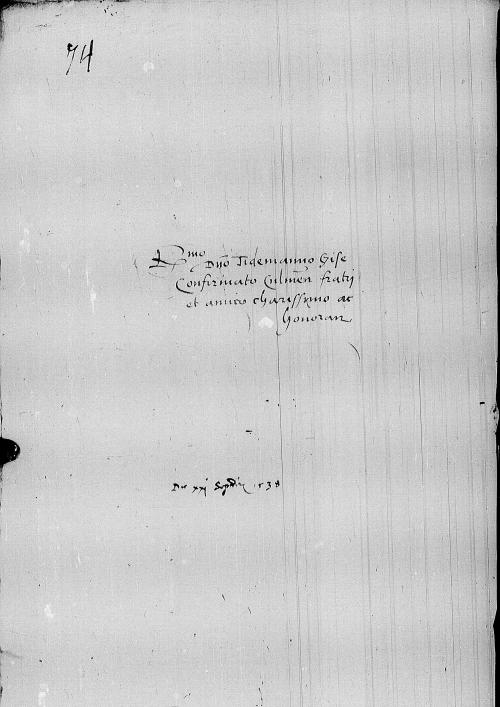 74
R<sup>mo</sup> Dno Tidemanno Gise
Confirmato Culmen fratri
et amico charissimo ac
honoran
Die xxj 1538